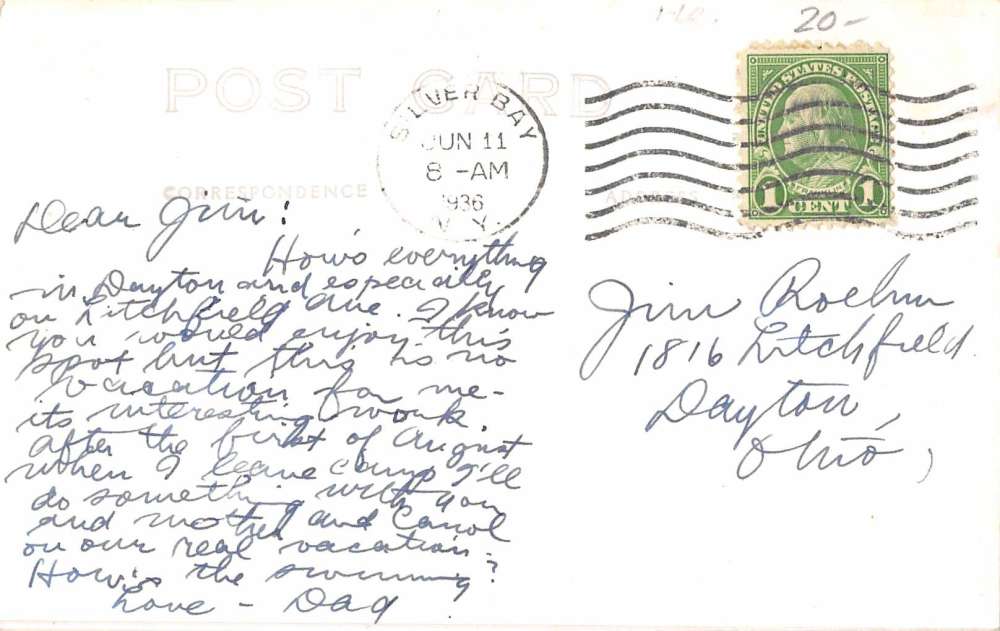 1-10.
20-
POST CARD
SILVER BAY
JUN 11
8-AM
1936
N.Y.
UNITED STATES POSTAGE
FRANKLIN
1 CENT 1
CORRESPONDENCE
ADDRESS
Dear Jim!
How's everything
in Dayton and especially
on Litchfield Ave. I know
you would enjoy this
spot but this is no
vacation for me-
its interesting work.
After the first of August
when I leave camp I'll
do something with you
and mother and Carol
on our real vacation.
How's the swimming?
Love - Dad
Jim Roehm
1816 Litchfield
Dayton,
Ohio,